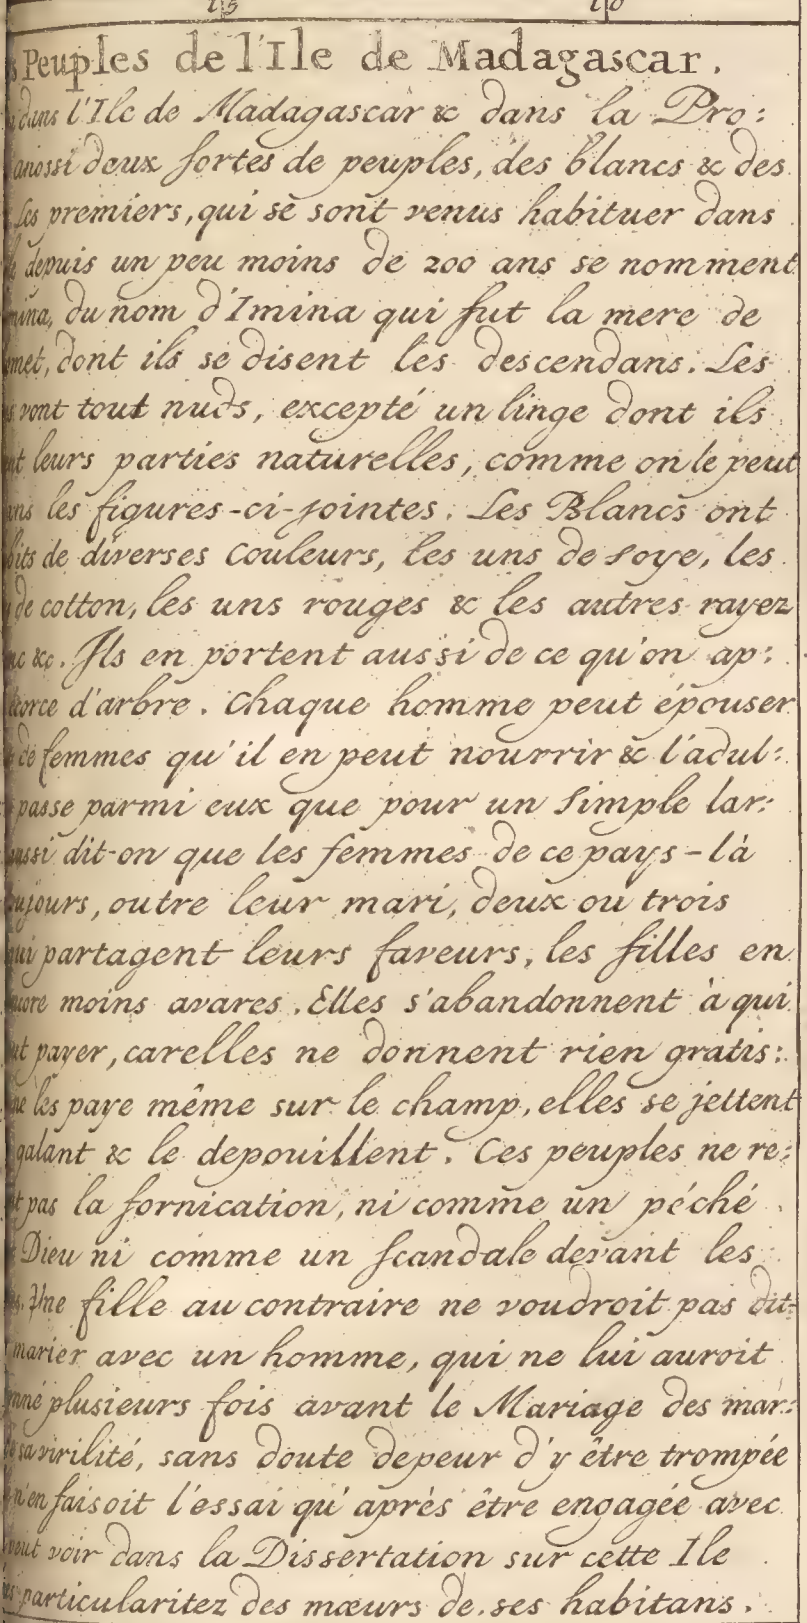 Peuples de l'Ile de Madagascar.
dans l'Ile de Madagascar & dans la Pro:
anossi deux sortes de peuples, des blancs & des
Les premiers, qui se sont venus habituer dans
depuis un peu moins de 200 ans se nomment
du nom d'Imina qui fut la mere de
dont ils se disent les descendans. Les
vont tout nuds, excepté un linge dont ils
leurs parties naturelles, comme on le peut
les figures-ci-jointes. Les Blancs ont
de diverses couleurs, les uns de soye, les
de cotton, les uns rouges & les autres rayez
&c. Ils en portent aussi de ce qu'on ap:
d'arbre. Chaque homme peut épouser
de femmes qu'il en peut nourrir & l'adul:
passe parmi eux que pour un simple lar:
dit-on que les femmes de ce pays-là
outre leur mari, deux ou trois
partagent leurs faveurs, les filles en
moins avares. Elles s'abandonnent à qui
payer, car elles ne donnent rien gratis:
les paye même sur le champ, elles se jettent
galant & le depouillent. Ces peuples ne re:
pas la fornication, ni comme un péché
Dieu ni comme un scandale devant les
Une fille au contraire ne voudroit pas dit-
marier avec un homme, qui ne lui auroit
plusieurs fois avant le Mariage des mar:
sa virilité, sans doute de peur d'y être trompée
n'en faisoit l'essai qu'après être engagée avec
voir dans la Dissertation sur cette Ile
particularitez des mœurs de ses habitans.